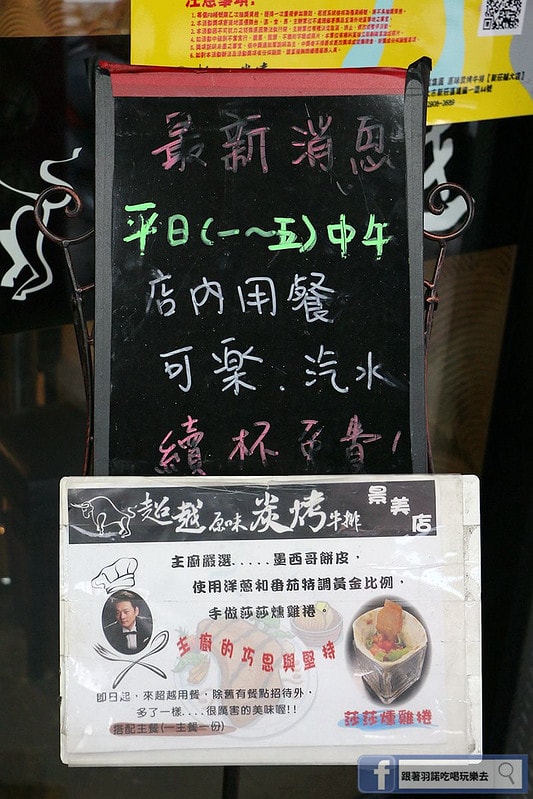 注意事項：
最新消息
平日(一～五)中午
店內用餐
可樂、汽水
續杯免費！
超越原味炭烤牛排 景美店
主廚嚴選.....墨西哥餅皮，
使用洋蔥和番茄特調黃金比例，
手做莎莎燻雞捲。
主廚的巧思與堅持
即日起，來超越用餐，除舊有餐點招待外，
多了一樣....很厲害的美味喔!!
搭配主餐(一主餐一份)
莎莎燻雞捲
跟著羽諾吃喝玩樂去